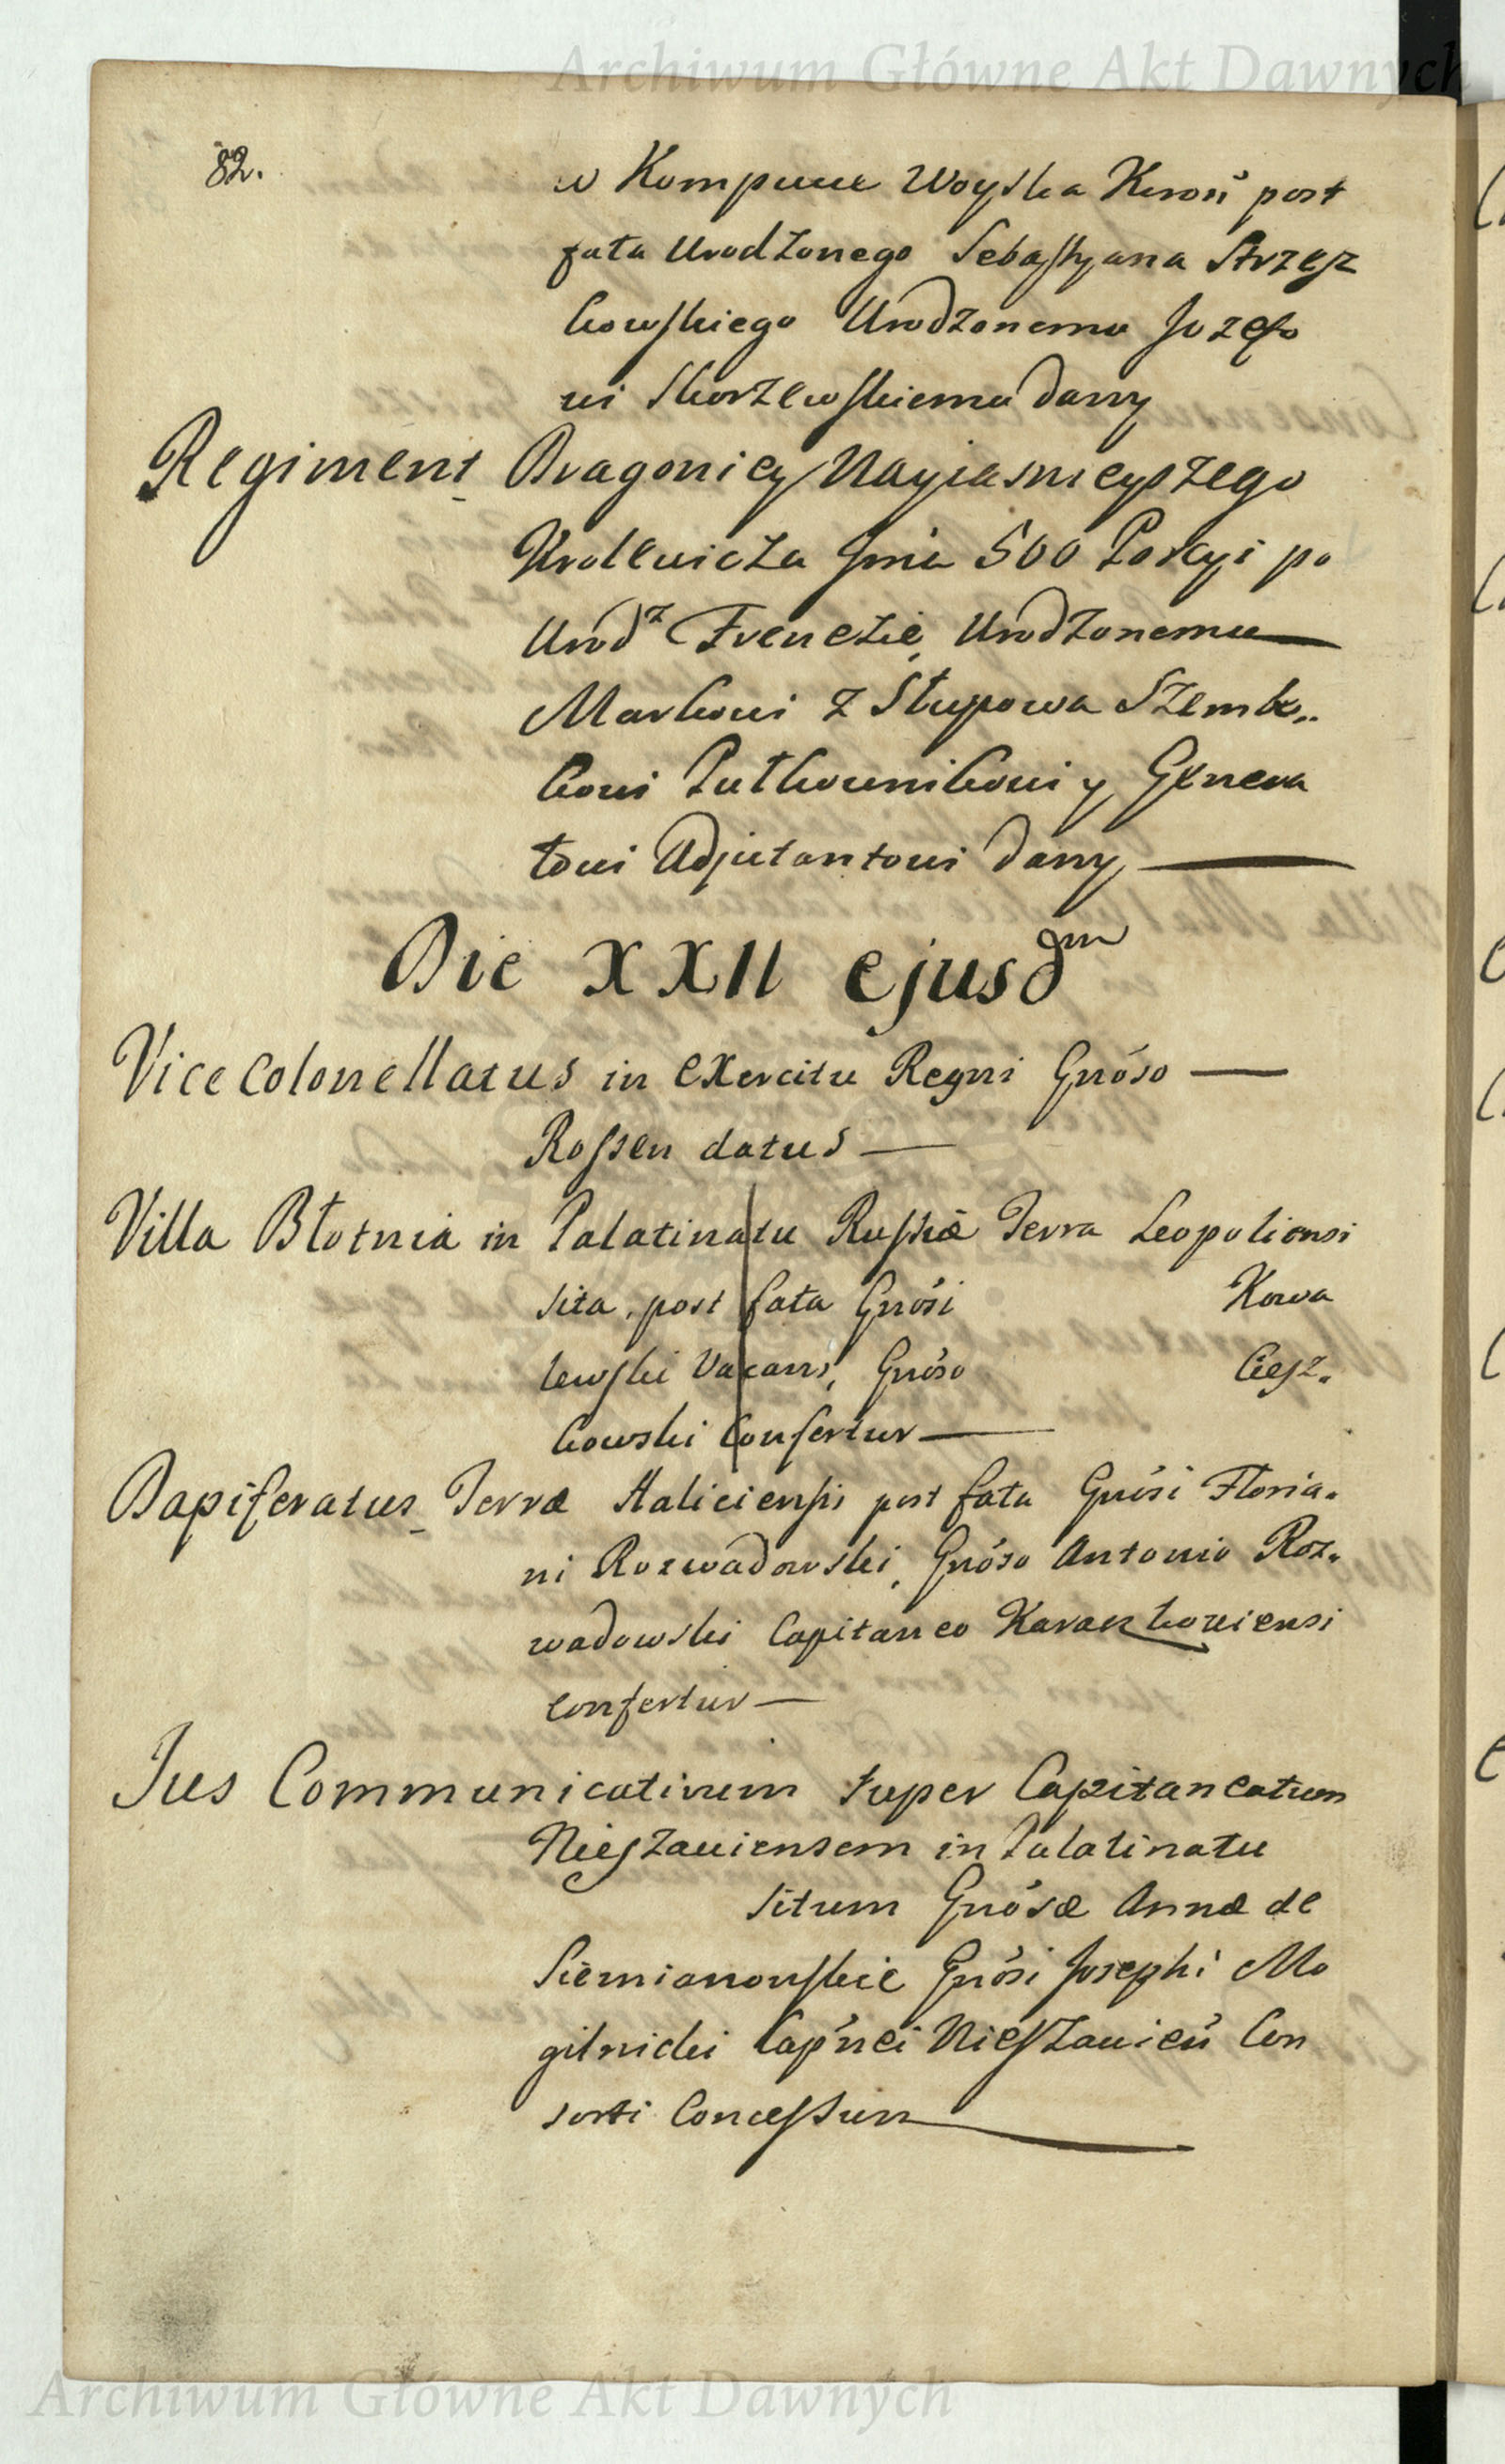 Archiwum Główne Akt Dawnych
82.
w Kompucie Woyska Koroń post
fata Urodzonego Sebastyana Strzesz
kowskiego Urodzonemu Jozefo
wi Skorzewskiemu dany
Regiment Dragoniey Nayiasnieyszego
Krolewicza Jmia 500 Porcyi po
Urodz Frenezie Urodzonemu
Markowi z Słupowa Szembe„
kowi Pułkownikowi y Genera
łowi Adjutantowi dany
Die XXII ejusdm
Vice Colonellatus in Exercitu Regni Gnóso
Rossen datus
Villa Błotnia in Palatinatu Russiæ Terra Leopoliensi
sita, post fata Gnósi Kowa
lewski Vacans, Gnóso Ciesz.
kowski Confertur
Dapiferatus Terræ Haliciensis post fata Gnósi Floria.
ni Rozwadowski, Gnóso Antonio Roz.
wadowski Capitaneo Karaczkoviensi
confertur
Jus Communicativum super Capitaneatum
Nieszaviensem in Palatinatu
situm Gnósæ Annæ de
Siemianowskie Gnósi Josephi Mo
gilnicki Capńei Nieszavień Con
sorti Concessum
Archiwum Główne Akt Dawnych